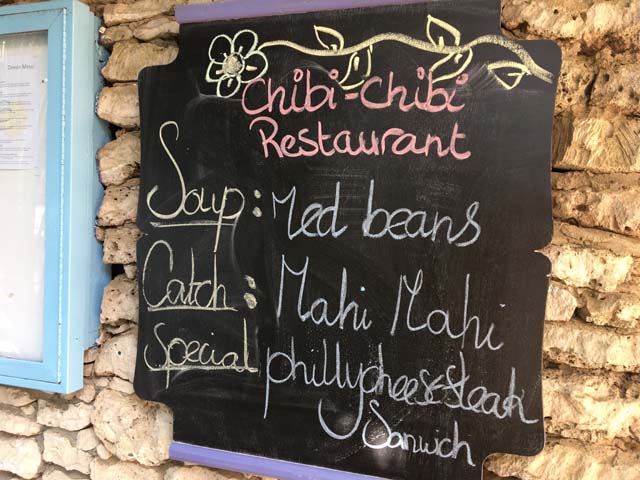 Chibi-Chibi
Restaurant
Soup: Red beans
Catch: Mahi Mahi
Special phillycheesesteak
Sanwich